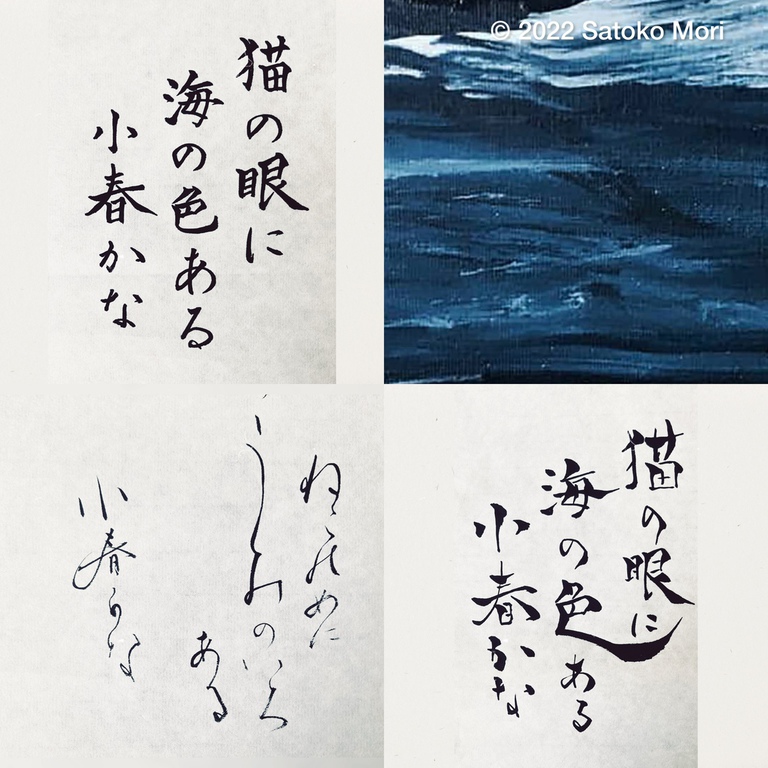 猫の眼に
海の色ある
小春かな
© 2022 Satoko Mori
ねこのめに
うみのいろ
ある
小春かな
猫の眼に
海の色ある
小春かな